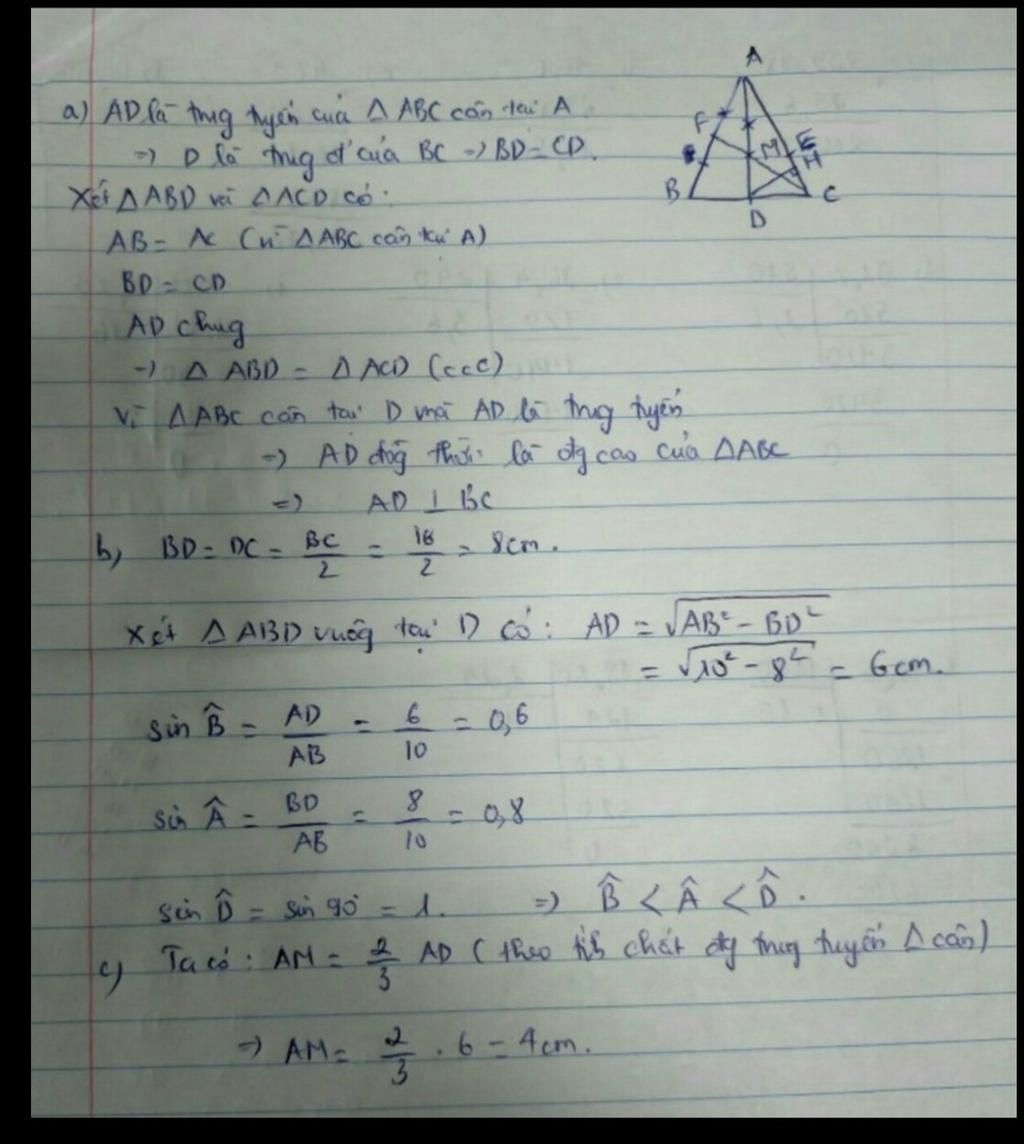 A
F
M
E
H
B
D
C
a) AD là trug tuyến của Δ ABC cân tại A
=> D là trug đ' của BC => BD = CD.
Xét Δ ABD và Δ ACD có:
AB = AC (vì Δ ABC cân tại A)
BD = CD
AD chug
=> Δ ABD = Δ ACD (ccc)
Vì Δ ABC cân tại D mà AD là trug tuyến
=> AD đồg thời là đg cao của Δ ABC
=> AD ⊥ BC
b, BD = DC = BC/2 = 16/2 = 8cm.
Xét Δ ABD vuôg tại D có: AD = √(AB² - BD²)
= √(10² - 8²) = 6cm.
sin B̂ = AD/AB = 6/10 = 0,6
sin Â = BD/AB = 8/10 = 0,8
sin D̂ = sin 90° = 1. => B̂ < Â < D̂.
c) Ta có: AM = 2/3 AD (theo tíh chất đg trug tuyến Δ cân)
=> AM = 2/3 . 6 = 4cm.